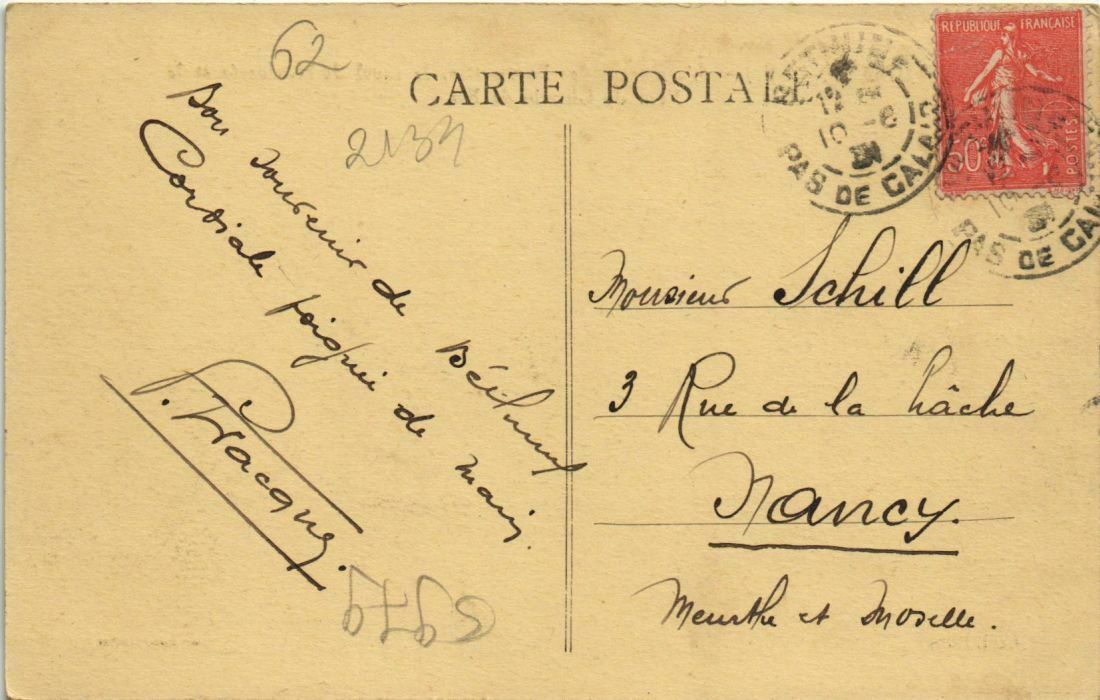 62
CARTE POSTALE
2134
Bon souvenir de Béthune
Cordiale poignée de main.
BETHUNE
12
10 -6
31
PAS DE CALAIS
REPUBLIQUE FRANÇAISE
50c
POSTES
PAS DE CALAIS
Monsieur Schill
3 Rue de la hâche
Nancy.
Meurthe et Moselle.